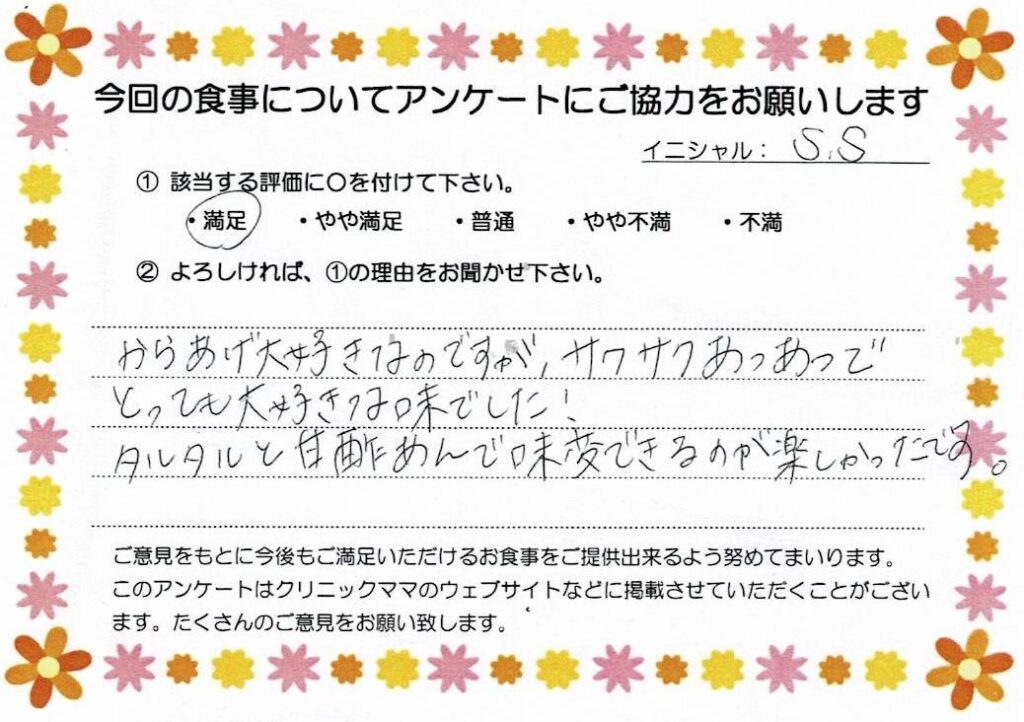 今回の食事についてアンケートにご協力をお願いします
イニシャル： S.S
① 該当する評価に○を付けて下さい。
・満足 ・やや満足 ・普通 ・やや不満 ・不満
② よろしければ、①の理由をお聞かせ下さい。
からあげ大好きなのですが、サクサクあつあつで
とっても大好きな味でした！
タルタルと甘酢あんで味変できるのが楽しかったです。
ご意見をもとに今後もご満足いただけるお食事をご提供出来るよう努めてまいります。
このアンケートはクリニックママのウェブサイトなどに掲載させていただくことがござい
ます。たくさんのご意見をお願い致します。